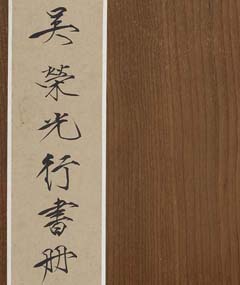 吴榮光行書册